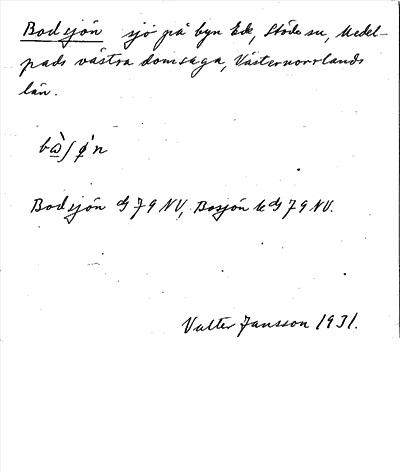 Bodsjön sjö på byn Ede, Stöde sn, Medel-
pads västra domsaga, Västernorrlands
län.
bɷ̀ʃǿn
Bodsjön GJ 79 NV, Bosjön k GJ 79 NV.
Valter Jansson 1931.